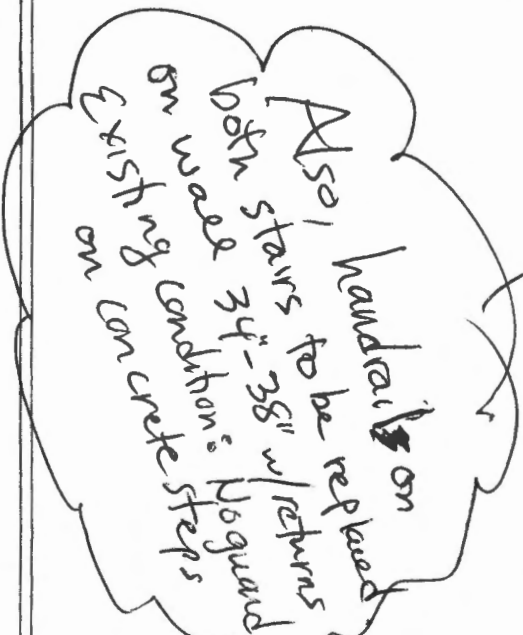 Also, handrails on
both stairs to be replaced
on wall 34"-38" w/returns
Existing condition: No guard
on concrete steps